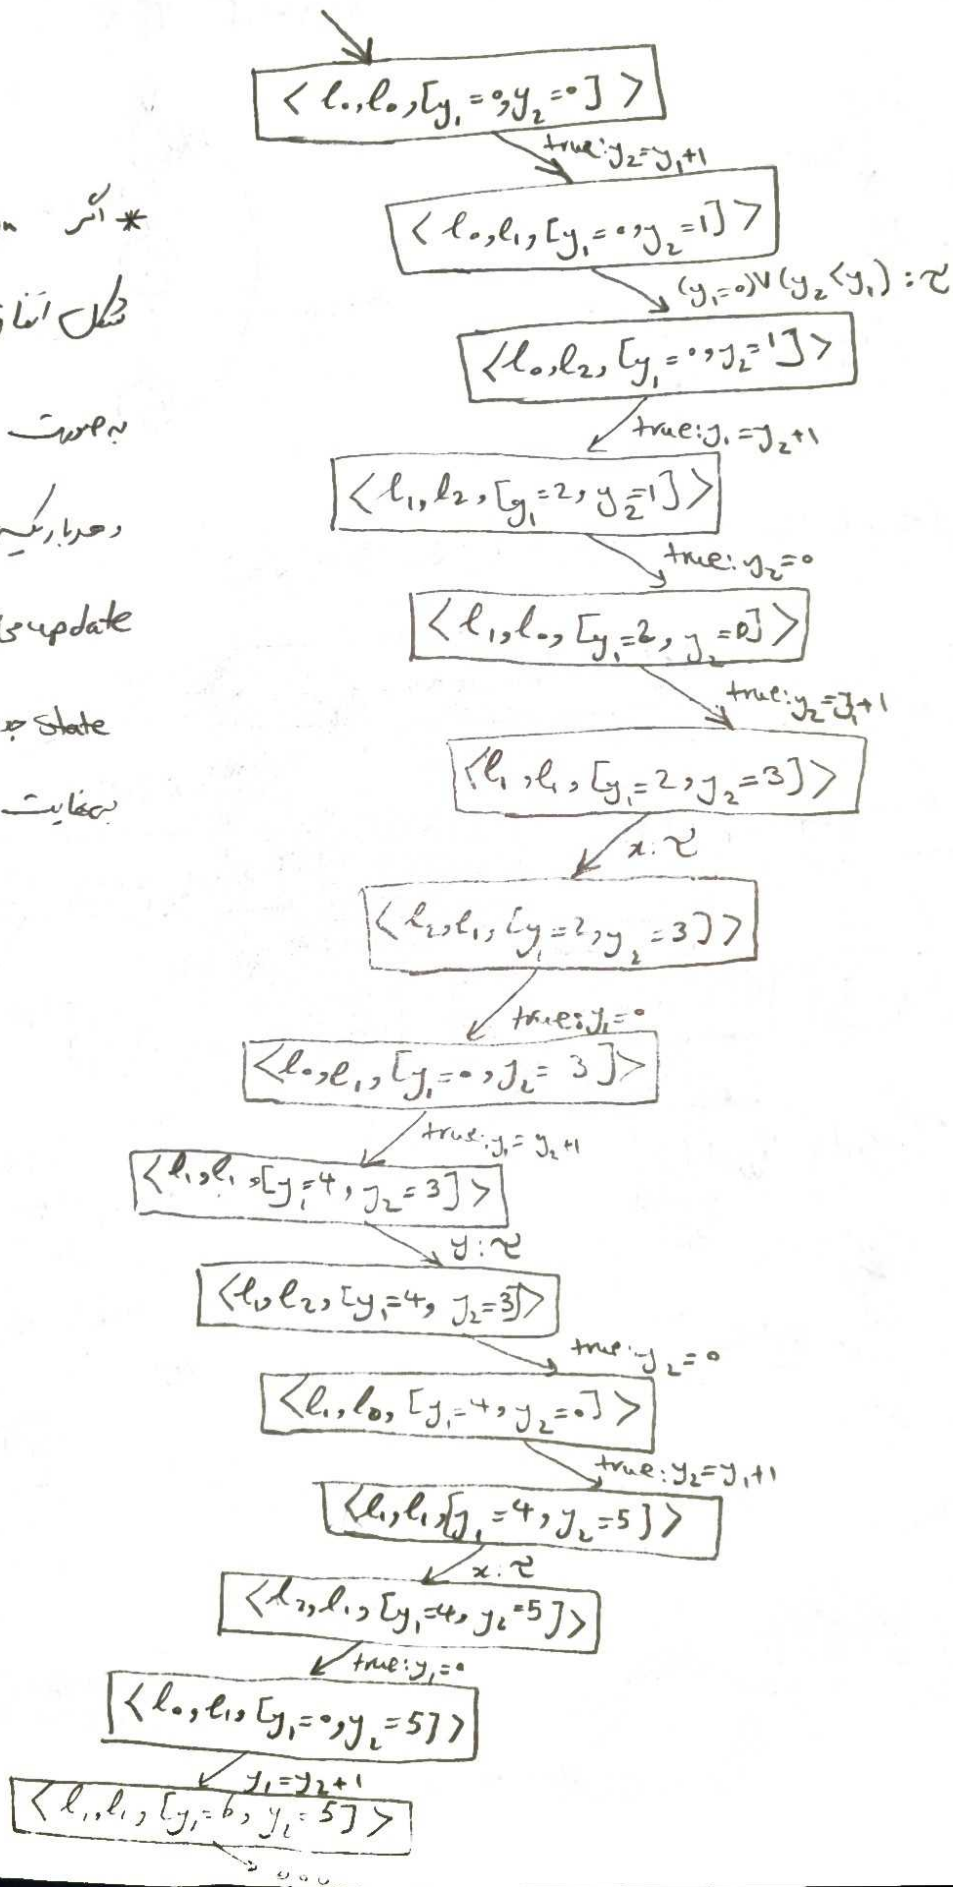 < l₀, l₀, [y₁ = 0, y₂ = 0] >
true: y₂ = y₁+1
< l₀, l₁, [y₁ = 0, y₂ = 1] >
* اگر
(y₁=0) ∨ (y₂ < y₁) : τ
شکل
< l₀, l₂, [y₁ = 0, y₂ = 1] >
true: y₁ = y₂+1
به صورت
< l₁, l₂, [y₁ = 2, y₂ = 1] >
true: y₂ = 0
update
< l₁, l₀, [y₁ = 2, y₂ = 0] >
true: y₂ = y₁+1
state
< l₁, l₁, [y₁ = 2, y₂ = 3] >
x: τ
< l₂, l₁, [y₁ = 2, y₂ = 3] >
true: y₁ = 0
< l₀, l₁, [y₁ = 0, y₂ = 3] >
true: y₁ = y₂+1
< l₁, l₁, [y₁ = 4, y₂ = 3] >
y: τ
< l₁, l₂, [y₁ = 4, y₂ = 3] >
true: y₂ = 0
< l₁, l₀, [y₁ = 4, y₂ = 0] >
true: y₂ = y₁+1
< l₁, l₁, [y₁ = 4, y₂ = 5] >
x: τ
< l₂, l₁, [y₁ = 4, y₂ = 5] >
true: y₁ = 0
< l₀, l₁, [y₁ = 0, y₂ = 5] >
y₁ = y₂+1
< l₁, l₁, [y₁ = 6, y₂ = 5] >
...